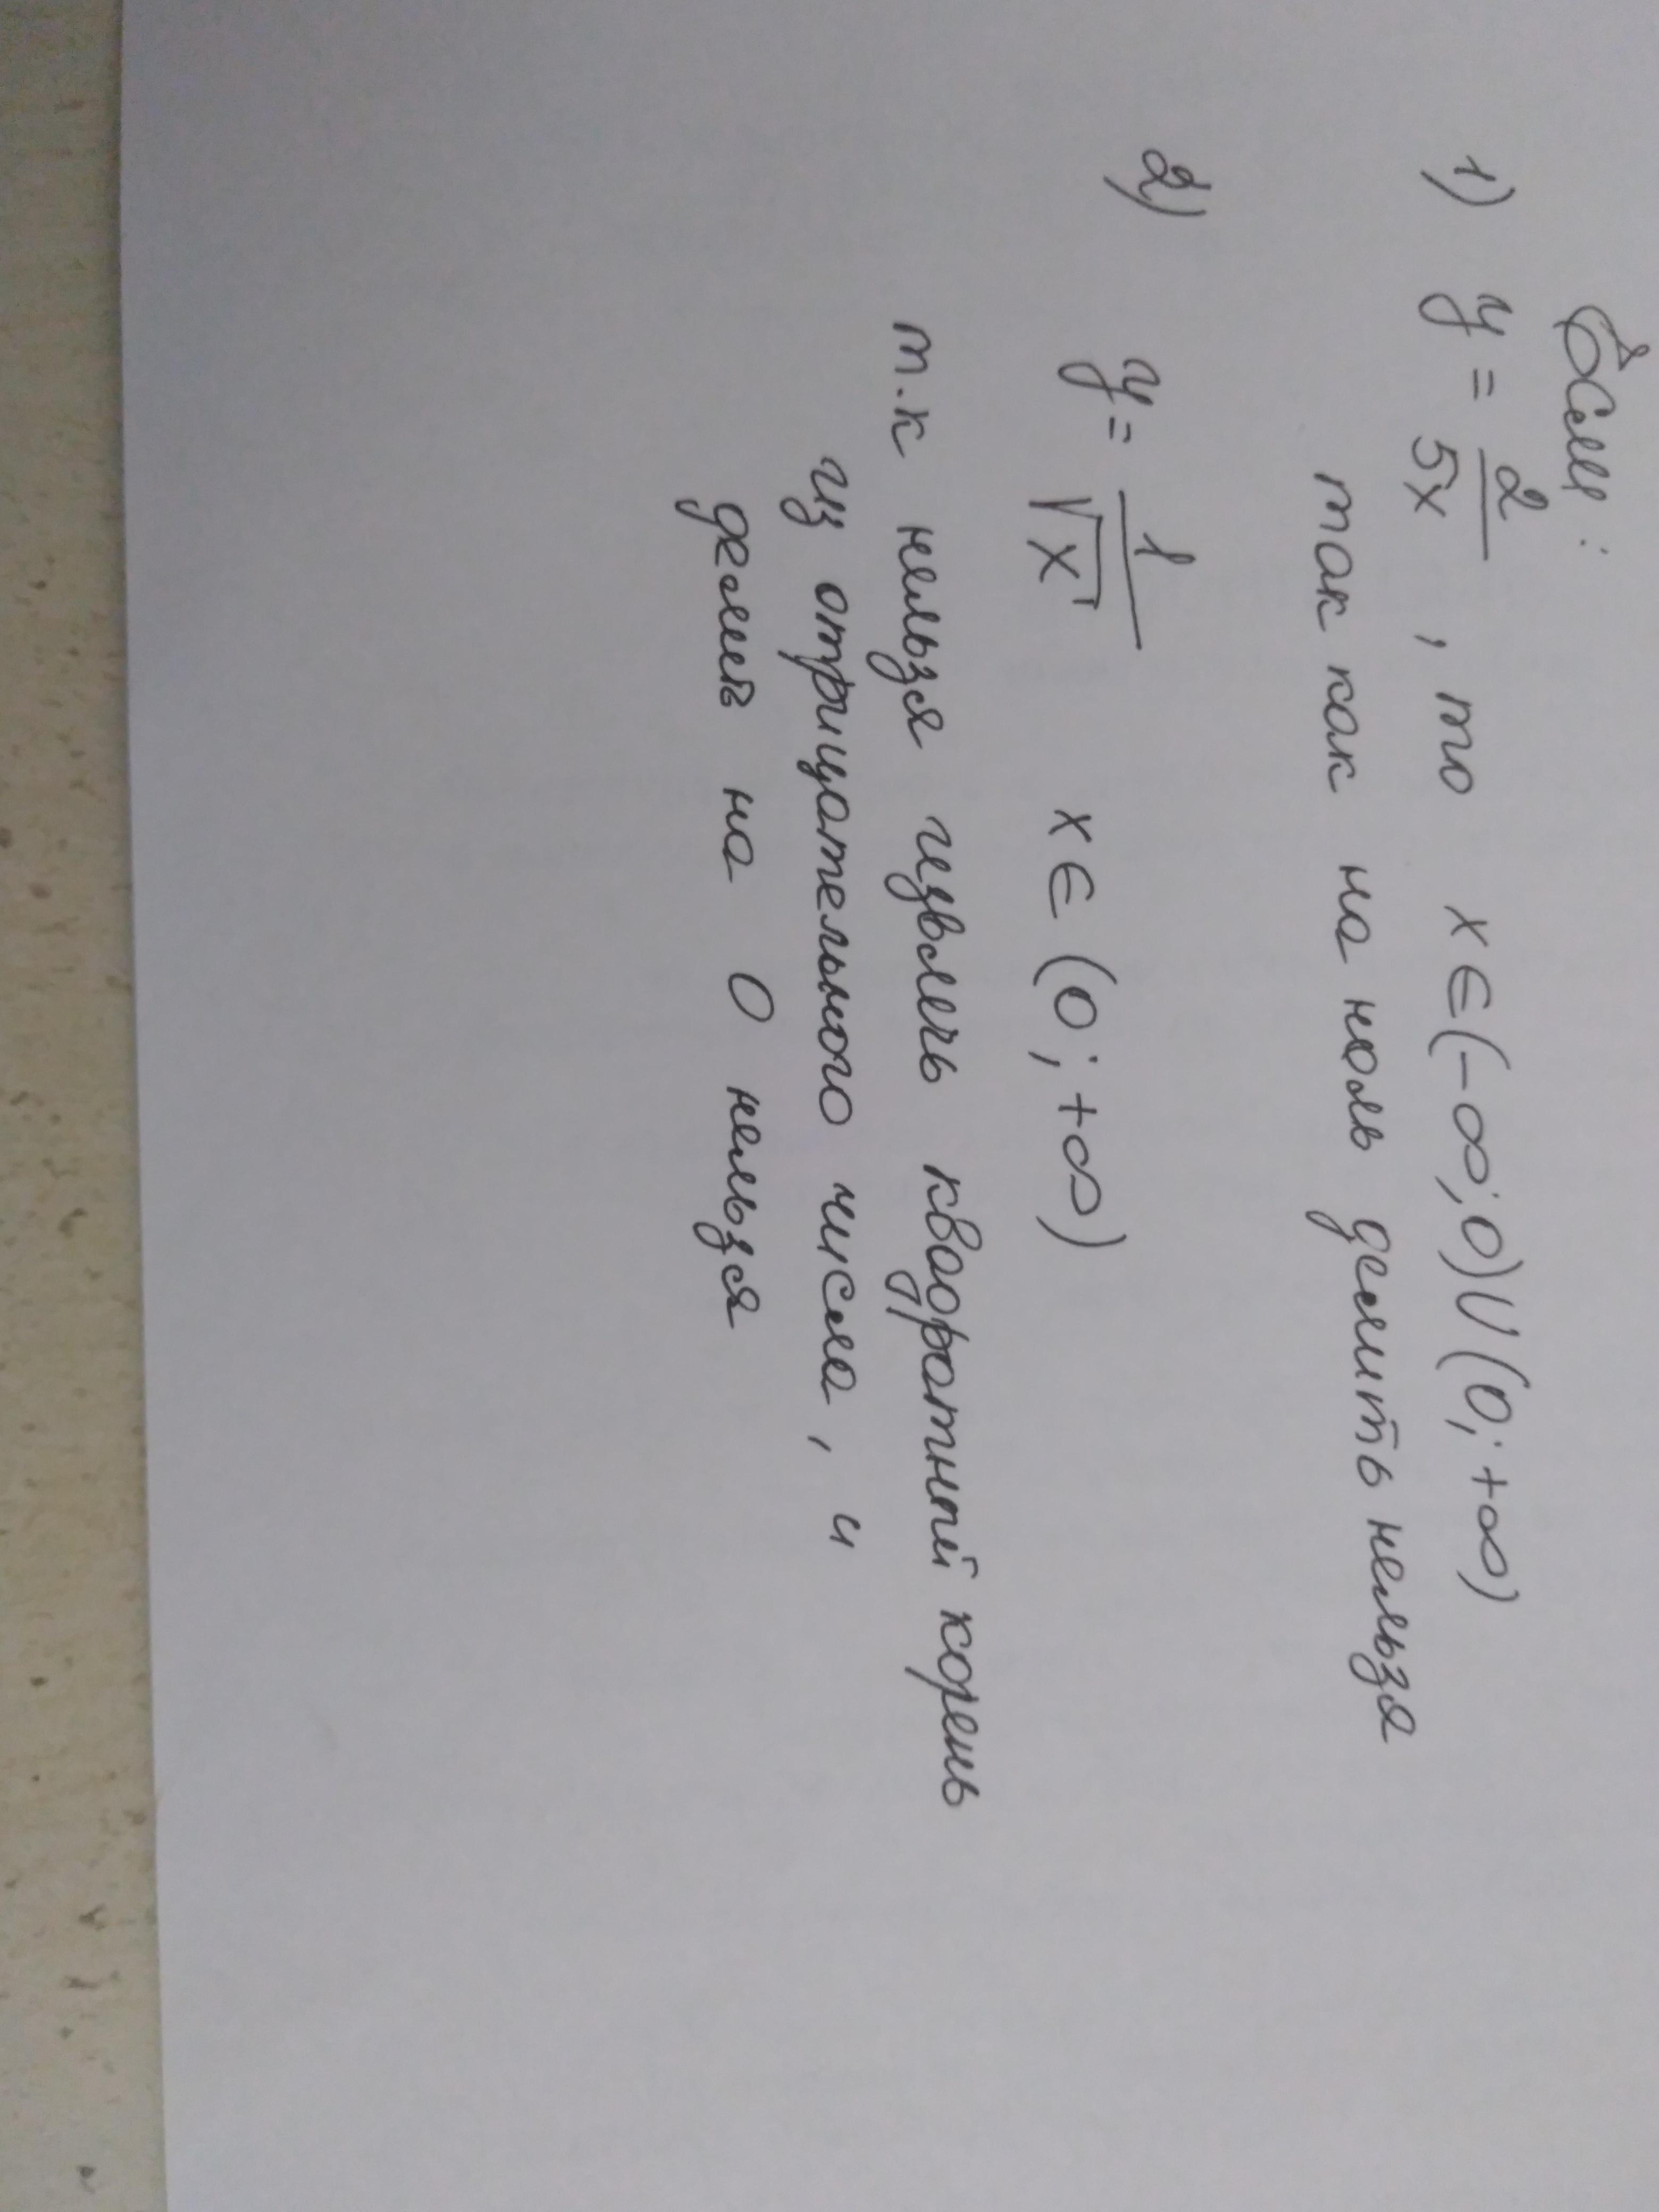 Если:
1) y = 2/5x , то x∈(-∞; 0)U(0; +∞)
так как на ноль делить нельзя
2) y = 1/√x x∈(0; +∞)
т.к нельзя извлечь квадратный корень
из отрицательного числа, и
делить на 0 нельзя